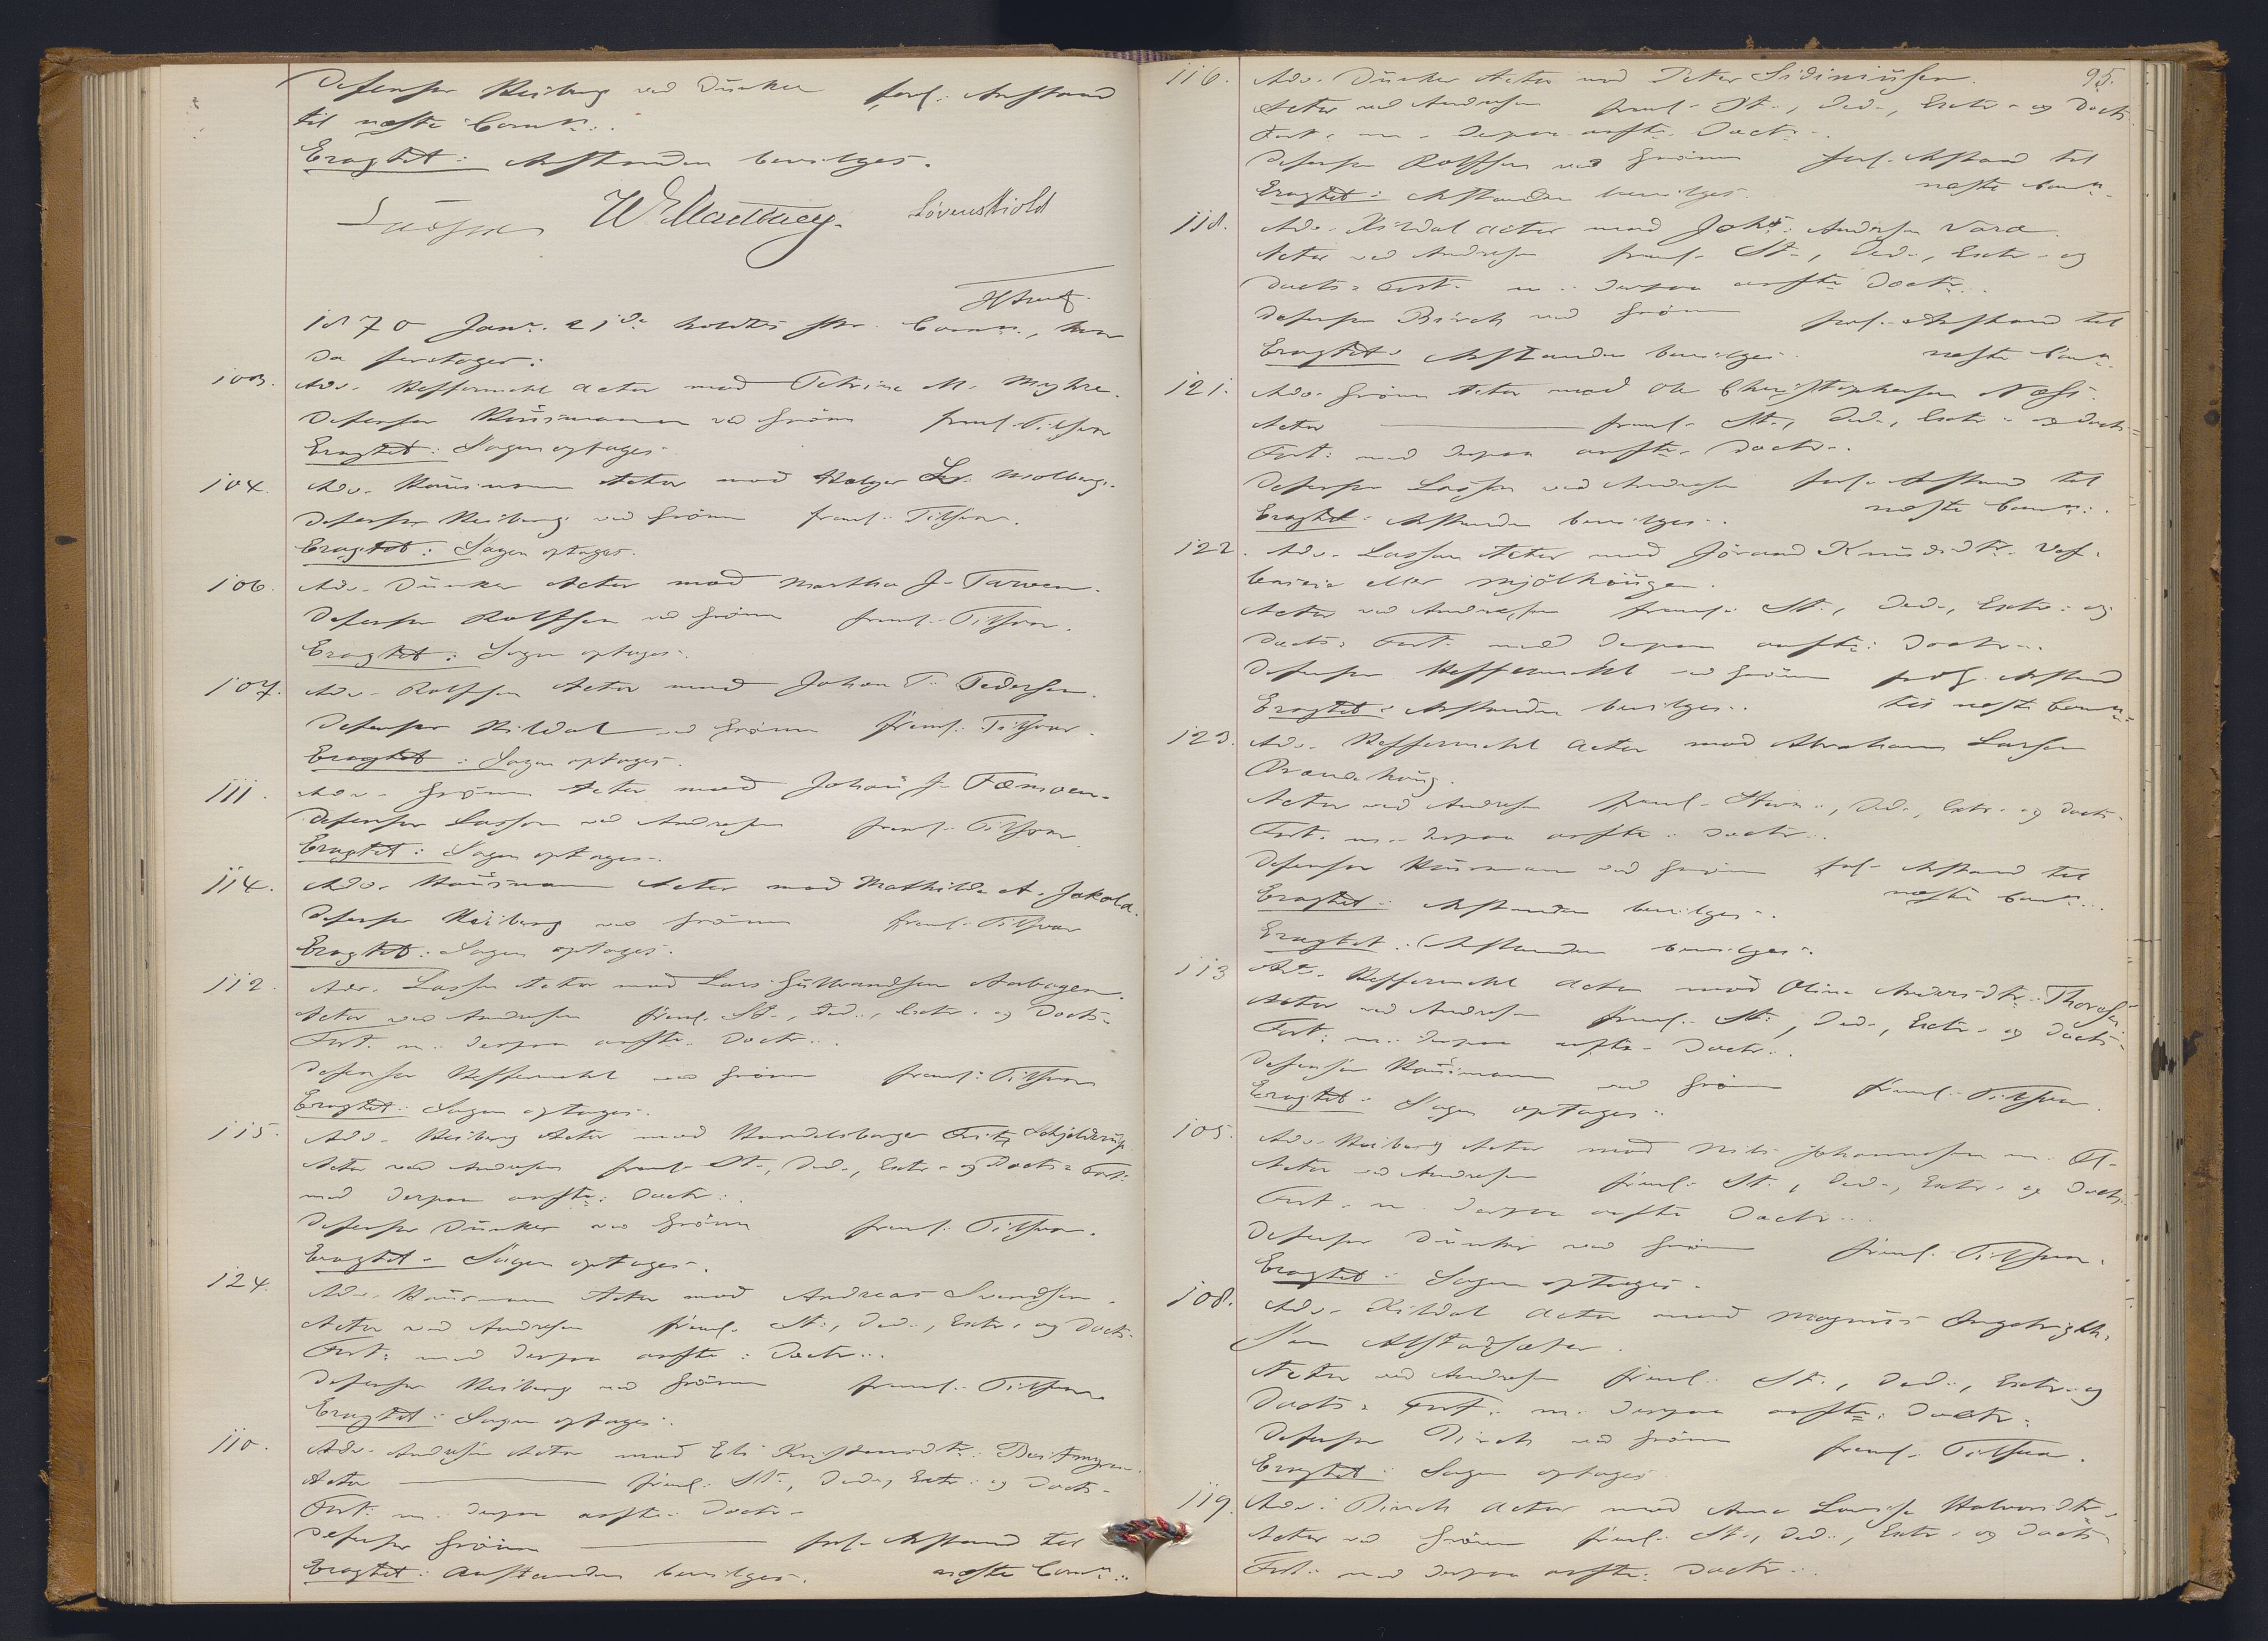 Defensor Heiberg ved Dunker forl. Anstand
til næste Comn:.
Eragtet: Anstanden bevilges.
Løvenskiold
1870 Janr. 21de holdtes Comn., hvor
da foretoges:
103. Adv. Heffermehl Actor mod Petrine M. Myhre.
Defensor Hausmann ved Grönn freml. Tilsvar
Eragtet: Sagen optages.
104. Adv. Hausmann Actor mod Holger Molberg.
Defensor Heiberg ved Grönn freml. Tilsvar.
Eragtet: Sagen optages.
106. Adv. Dunker Actor mod Martha J. Tarven.
Defensor Rolfsen ved Grönn freml. Tilsvar.
Eragtet: Sagen optages.
107. Adv. Rolfsen Actor mod Johan P. Pedersen.
Defensor Kildal ved Grönn freml. Tilsvar.
Eragtet: Sagen optages.
111. Adv. Grönn Actor mod Johan J. Fæmoen.
Defensor Lasson ved Andresen freml. Tilsvar
Eragtet: Sagen optages.
114. Adv. Hausmann Actor mod Mathilde A. Jakola.
Defensor Heiberg ved Grönn freml. Tilsvar
Eragtet: Sagen optages.
112. Adv. Lasson Actor mod Lars Gulbrandsen Aabogen.
Actor ved Andresen freml. St., Ded., Extr. og Docts=
Fort. m. derpaa anfte. Doctr..
Defensor Heffermehl ved Grönn freml. Tilsvar
Eragtet: Sagen optages.
115. Adv. Heiberg Actor mod Handelsborger Fritz Schjelderup
Actor ved Andresen freml. St., Ded., Extr. og Docts= Fort:
med derpaa anfte: Doctr:.
Defensor Dunker ved Grönn freml. Tilsvar.
Eragtet. Sagen optages.
124. Adv. Hausmann Actor mod Andreas Svendsen.
Actor ved Andresen freml. St., Ded., Extr. og Docts=
Fort: med derpaa anfte: Doctr..
Defensor Heiberg ved Grönn freml. Tilsvar.
Eragtet: Sagen optages.
110. Adv. Andresen Actor mod Eli Kristensdtr:
Actor freml. St., Ded., Extr. og Docts=
Fort. m. derpaa anfte. Doctr.
Defensor Grönn forl. Anstand til
Eragtet: Anstanden bevilges. næste Comn:.
95.
116. Adv. Dunker Actor mod Peter Sidiniussen.
Actor ved Andresen freml. St., Ded., Extr. og Docts
Fort. m. derpaa anfte. Doctr..
Defensor Rolfsen ved Grönn forl. Anstand til
Eragtet: Anstanden bevilges. næste Comn.
118. Adv. Kildal Actor mod Johs: Andersen Vara.
Actor ved Andresen freml. St., Ded., Extr. og
Docts= Fort. m. derpaa anfte Doctr..
Defensor Birch ved Grönn forl. Anstand til
Eragtet: Anstanden bevilges. næste Comn.
121. Adv. Grönn Actor mod Ole Christophersen Næss.
Actor freml. St., Ded., Extr. og Docts=
Fort: med derpaa anfte. Doctr..
Defensor Lasson ved Andresen forl. Anstand til
Eragtet: Anstanden bevilges. næste Comn:.
122. Adv. Lasson Actor mod Jörand Knudsdtr.
eller Mjölhaugen.
Actor ved Andresen freml. St., Ded., Extr: og
Docts= Fort. med derpaa anfte: Doctr..
Defensor Heffermehl ved Grönn forl. Anstand
Eragtet: Anstanden bevilges. til næste Comn:
123. Adv. Heffermehl Actor mod Abraham Larsen
Brændhaug.
Actor ved Andresen freml. Stevn., Ded., Extr. og Docts=
Fort. m. derpaa anfte. Doctr..
Defensor Hausmann ved Grönn forl. Anstand til
Eragtet: Anstanden bevilges. næste Comn..
Eragtet: Anstanden bevilges.
113 Adv. Heffermehl Actor mod Oline Andersdtr:
Actor ved Andresen freml. St., Ded., Extr. og Docts=
Fort: m. derpaa anfte. Doctr..
Defensor Hausmann ved Grönn freml. Tilsvar.
Eragtet: Sagen optages.
105. Adv. Heiberg Actor mod Nils Johannesen m. Fl.
Actor ved Andresen freml. St., Ded., Extr. og Docts=
Fort. m. derpaa anfte Doctr..
Defensor Dunker ved Grönn freml. Tilsvar.
Eragtet: Sagen optages.
108. Adv. Kildal Actor mod Magnus Ingebrigt-
sen Alstadsæter.
Actor ved Andresen freml. St., Ded., Extr. og
Docts= Fort. m. derpaa anfte: Doctr.
Defensor Birch ved Grönn freml. Tilsvar.
Eragtet: Sagen optages
119. Adv: Birch Actor mod Anne Lovise Halvorsdtr.
Actor ved Grönn freml. St., Ded., Extr. og Docts
Fort: med derpaa anfte: Doctr..